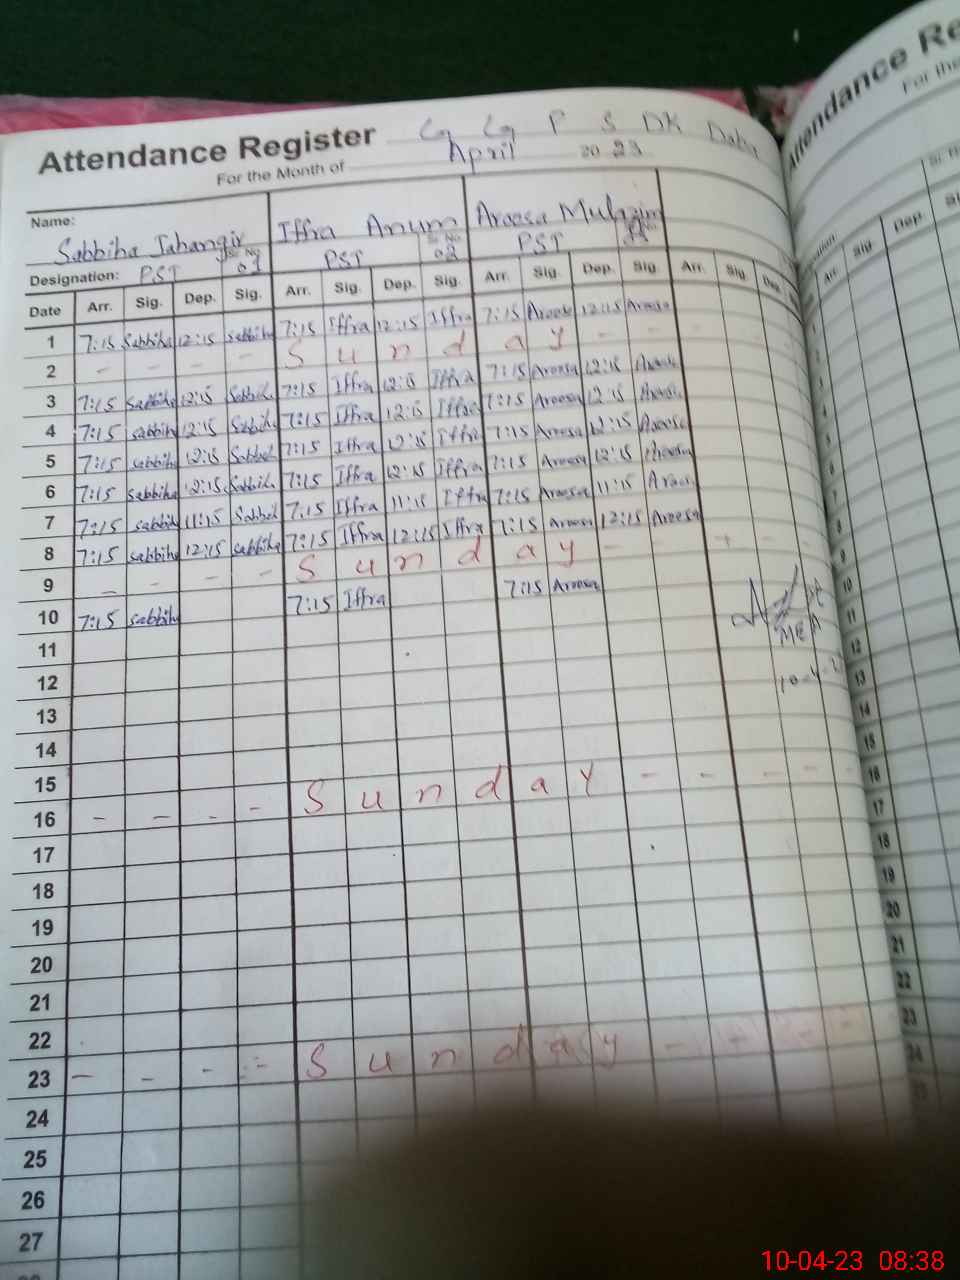 Attendance Register G G P S DK Daha
For the Month of April 20 23
Name: Sabbiha Jahangir Sr. No. 01 Iffra Anum Sr. No. 02 Areesa Mulazim
Designation: PST PST PST
Date Arr. Sig. Dep. Sig. Arr. Sig. Dep. Sig. Arr. Sig. Dep. Sig. Arr. Sig. Dep.
1 7:15 Sabbiha 12:15 Sabbiha 7:15 Iffra 12:15 Iffra 7:15 Areesa 12:15 Areesa
2 - - - - S u n d a y - - -
3 7:15 Sabbiha 12:15 Sabbiha 7:15 Iffra 12:15 Iffra 7:15 Areesa 12:15 Areesa
4 7:15 Sabbiha 12:15 Sabbiha 7:15 Iffra 12:15 Iffra 7:15 Areesa 12:15 Areesa
5 7:15 Sabbiha 12:15 Sabbiha 7:15 Iffra 12:15 Iffra 7:15 Areesa 12:15 Areesa
6 7:15 Sabbiha 12:15 Sabbiha 7:15 Iffra 12:15 Iffra 7:15 Areesa 12:15 Areesa
7 7:15 Sabbiha 11:15 Sabbiha 7:15 Iffra 11:15 Iffra 7:15 Areesa 11:15 Areesa
8 7:15 Sabbiha 12:15 Sabbiha 7:15 Iffra 12:15 Iffra 7:15 Areesa 12:15 Areesa
9 - - - - S u n d a y - - - -
10 7:15 Sabbiha 7:15 Iffra 7:15 Areesa
MEA
11
12
13
14
15
16 - - - - S u n d a y - - - -
17
18
19
20
21
22
23 - - - - S u n d a y - - - -
24
25
26
27
Attendance Re
For the
Arr. Sig. Dep.
1
9
10
11
12
13
14
15
16
17
18
19
20
21
22
23
24
10-04-23 08:38